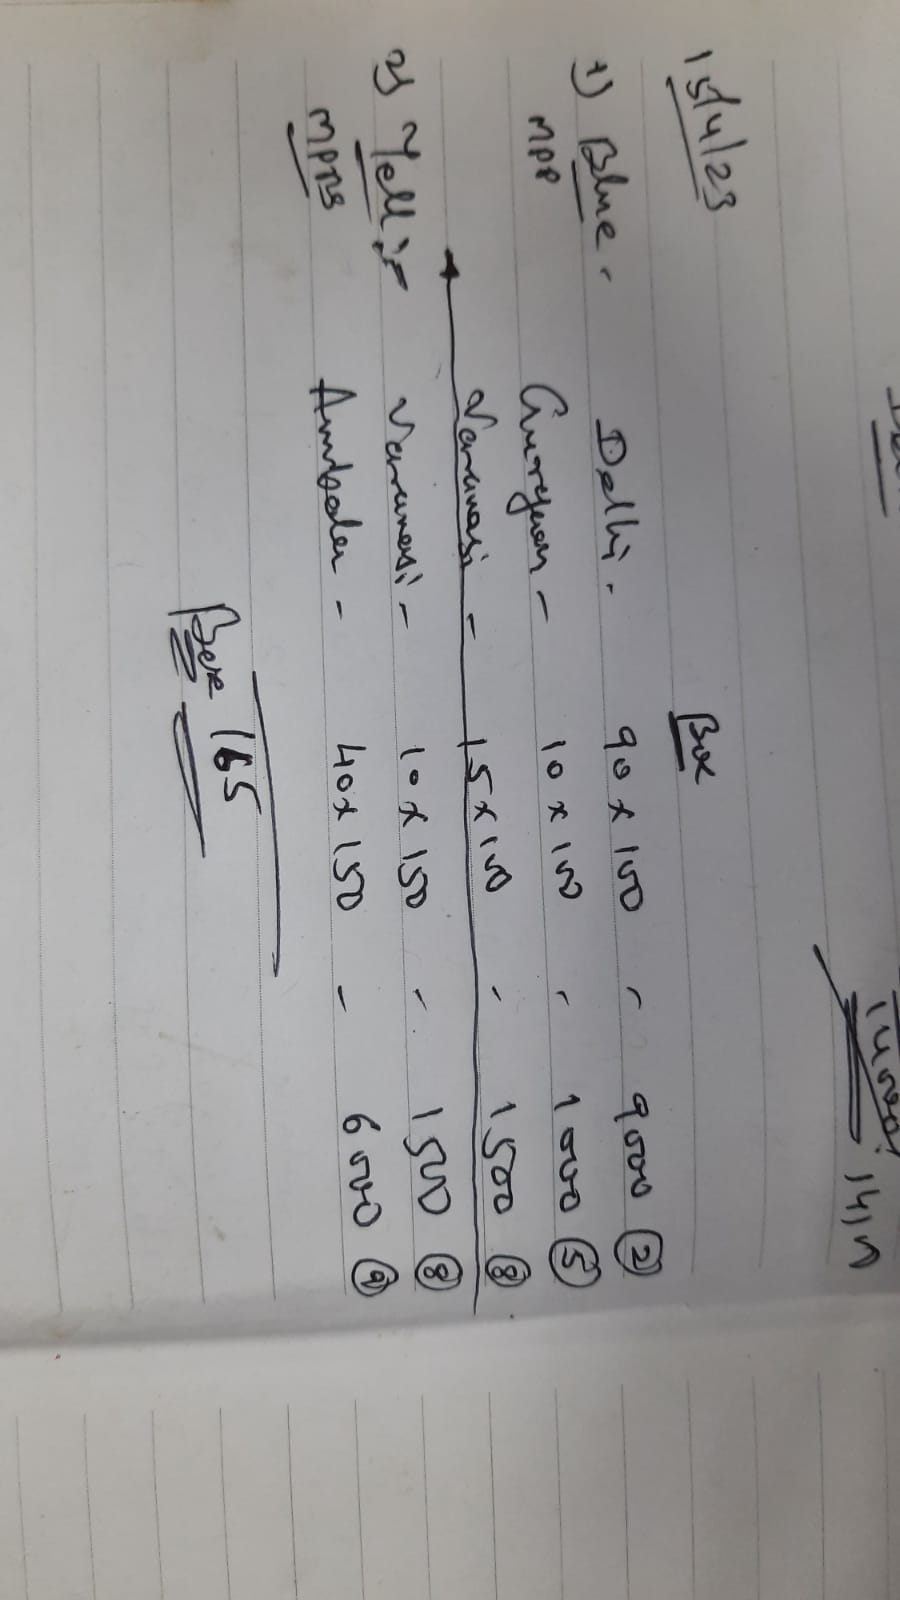 14000
15/4/23
Box
1) Blue - Delhi - 90 x 100 - 9000 (2)
MPP Gurgaon - 10 x 100 - 1000 (5)
Varanasi - 15 x 100 - 1500 (8)
2) Yell :- Varanasi - 10 x 150 - 1500 (8)
Ambala - 40 x 150 - 6000 (9)
Box 165